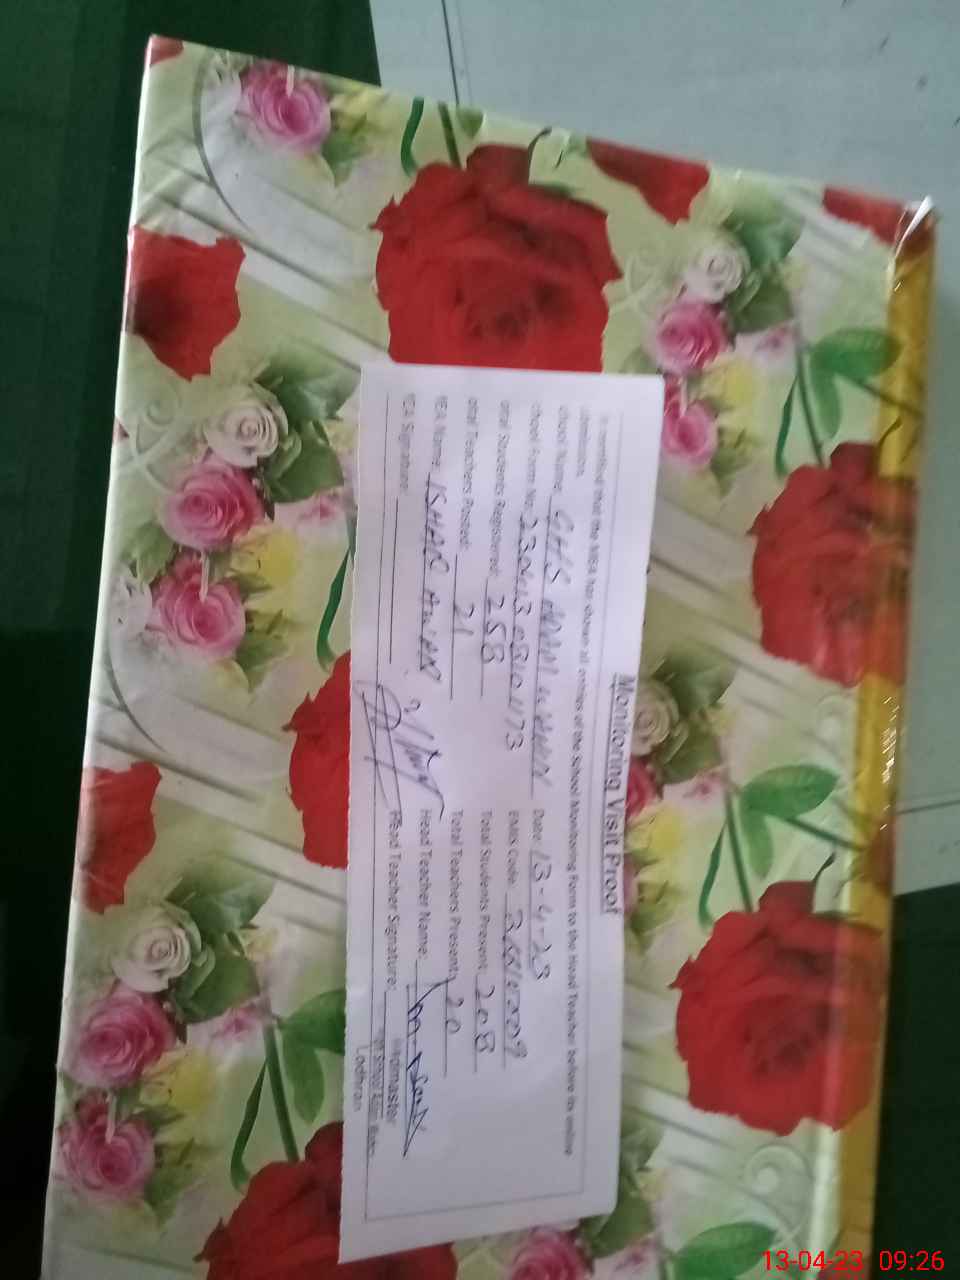 Monitoring Visit Proof
It is certified that the MEA has shown all entries of the School Monitoring Form to the Head Teacher before its online
submission.
School Name: GHS ADAM WAHAN Date: 13-4-23
School Form No: EMIS Code:
Total Students Registered: 258 Total Students Present: 208
Total Teachers Posted: 21 Total Teachers Present: 20
MEA Name: ISHAQ AWAN Head Teacher Name:
MEA Signature: Head Teacher Signature:
Headmaster
Lodhran
13-04-23 09:26